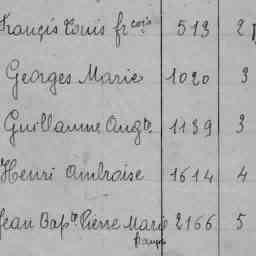 François Louis fr.çois 513 2
Georges Marie 1020 3
Guillaume Aug.te 1139 3
Henri Ambroise 1614 4
Jean Bap.te Pierre Marie 2166 5
françois